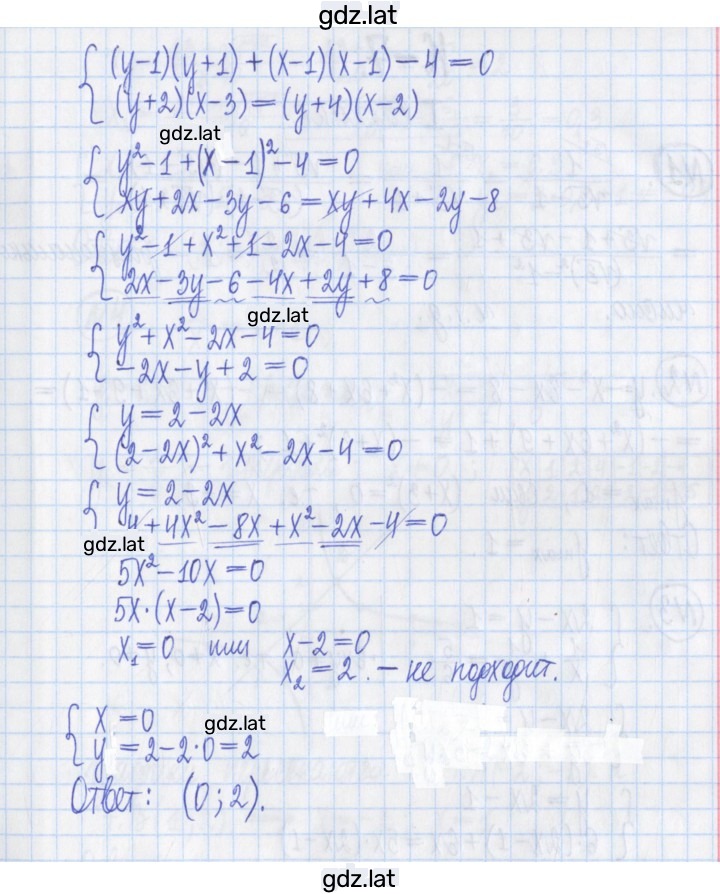 gdz.lat
(y-1)(y+1)+(x-1)(x-1)-4=0
(y+2)(x-3)=(y+4)(x-2)
gdz.lat
y²-1+(x-1)²-4=0
xy+2x-3y-6=xy+4x-2y-8
y²-1+x²+1-2x-4=0
2x-3y-6-4x+2y+8=0
gdz.lat
y²+x²-2x-4=0
-2x-y+2=0
y=2-2x
(2-2x)²+x²-2x-4=0
y=2-2x
4+4x²-8x+x²-2x-4=0
gdz.lat
5x²-10x=0
5x·(x-2)=0
x₁=0 или x-2=0
x₂=2. - не подходит.
x=0
gdz.lat
y=2-2·0=2
Ответ: (0;2).
gdz.lat